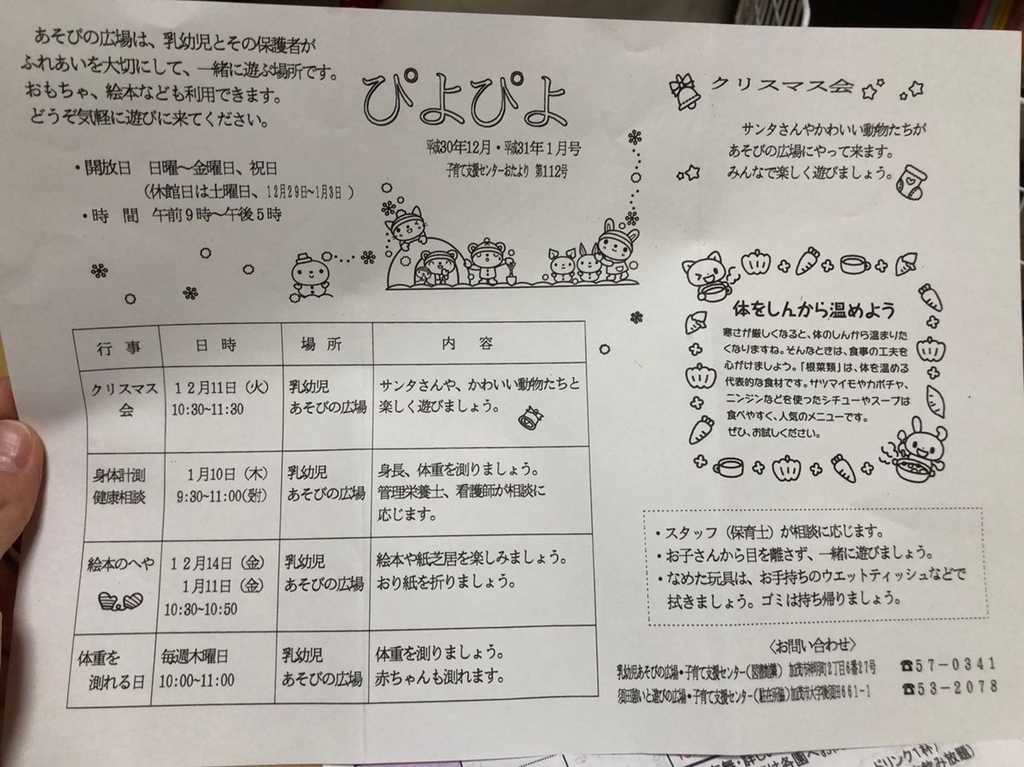 あそびの広場は、乳幼児とその保護者が
ふれあいを大切にして、一緒に遊ぶ場所です。
おもちゃ、絵本なども利用できます。
どうぞ気軽に遊びに来てください。
・開放日 日曜～金曜日、祝日
（休館日は土曜日、12月29日~1月3日 ）
・時 間 午前９時～午後５時
ぴよぴよ
平成30年12月・平成31年１月号
子育て支援センターおたより 第112号
クリスマス会
サンタさんやかわいい動物たちが
あそびの広場にやって来ます。
みんなで楽しく遊びましょう。
体をしんから温めよう
寒さが厳しくなると、体のしんから温まりた
くなりますね。そんなときは、食事の工夫を
心がけましょう。「根菜類」は、体を温める
代表的な食材です。サツマイモやカボチャ、
ニンジンなどを使ったシチューやスープは
食べやすく、人気のメニューです。
ぜひ、お試しください。
行 事 日 時 場 所 内 容
クリスマス会 １２月11日（火） 10:30~11:30 乳幼児あそびの広場 サンタさんや、かわいい動物たちと楽しく遊びましょう。
身体計測 健康相談 １月10日（木） 9:30~11:00(受付) 乳幼児あそびの広場 身長、体重を測りましょう。管理栄養士、看護師が相談に応じます。
絵本のへや １２月14日（金） １月11日（金） 10:30~10:50 乳幼児あそびの広場 絵本や紙芝居を楽しみましょう。おり紙を折りましょう。
体重を測れる日 毎週木曜日 10:00~11:00 乳幼児あそびの広場 体重を測りましょう。赤ちゃんも測れます。
・スタッフ（保育士）が相談に応じます。
・お子さんから目を離さず、一緒に遊びましょう。
・なめた玩具は、お手持ちのウエットティッシュなどで
拭きましょう。ゴミは持ち帰りましょう。
〈お問い合わせ〉
乳幼児あそびの広場・子育て支援センター（図書館隣） 加茂市神明町２丁目６番２１号 ☎５７-０３４１
須田憩いと遊びの広場・子育て支援センター 加茂市大字後須田６６１-１ ☎５３-２０７８
ドリンク１杯
飲み放題）